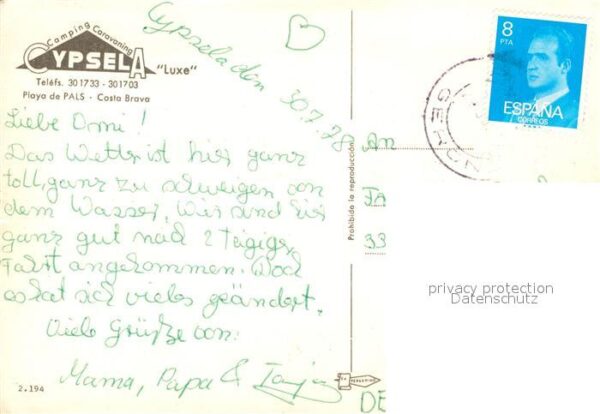 Camping Caravaning
CYPSELA "Luxe"
Teléfs. 301733 - 301703
Playa de PALS - Costa Brava
Cypsela den 30.7.78
8
PTA
ESPAÑA
CORREOS
GERON
Liebe Omi!
Das Wetter ist hier ganz
toll, ganz zu schweigen von
dem Wasser. Wir sind hier
ganz gut nach 2 Tägiger
Fahrt angekommen. Doch
es hat sich vieles geändert.
Viele Grüße von:
Mama, Papa & Tanja
Prohibida la reproducción
An
FA
33
DE
privacy protection
Datenschutz
2.194